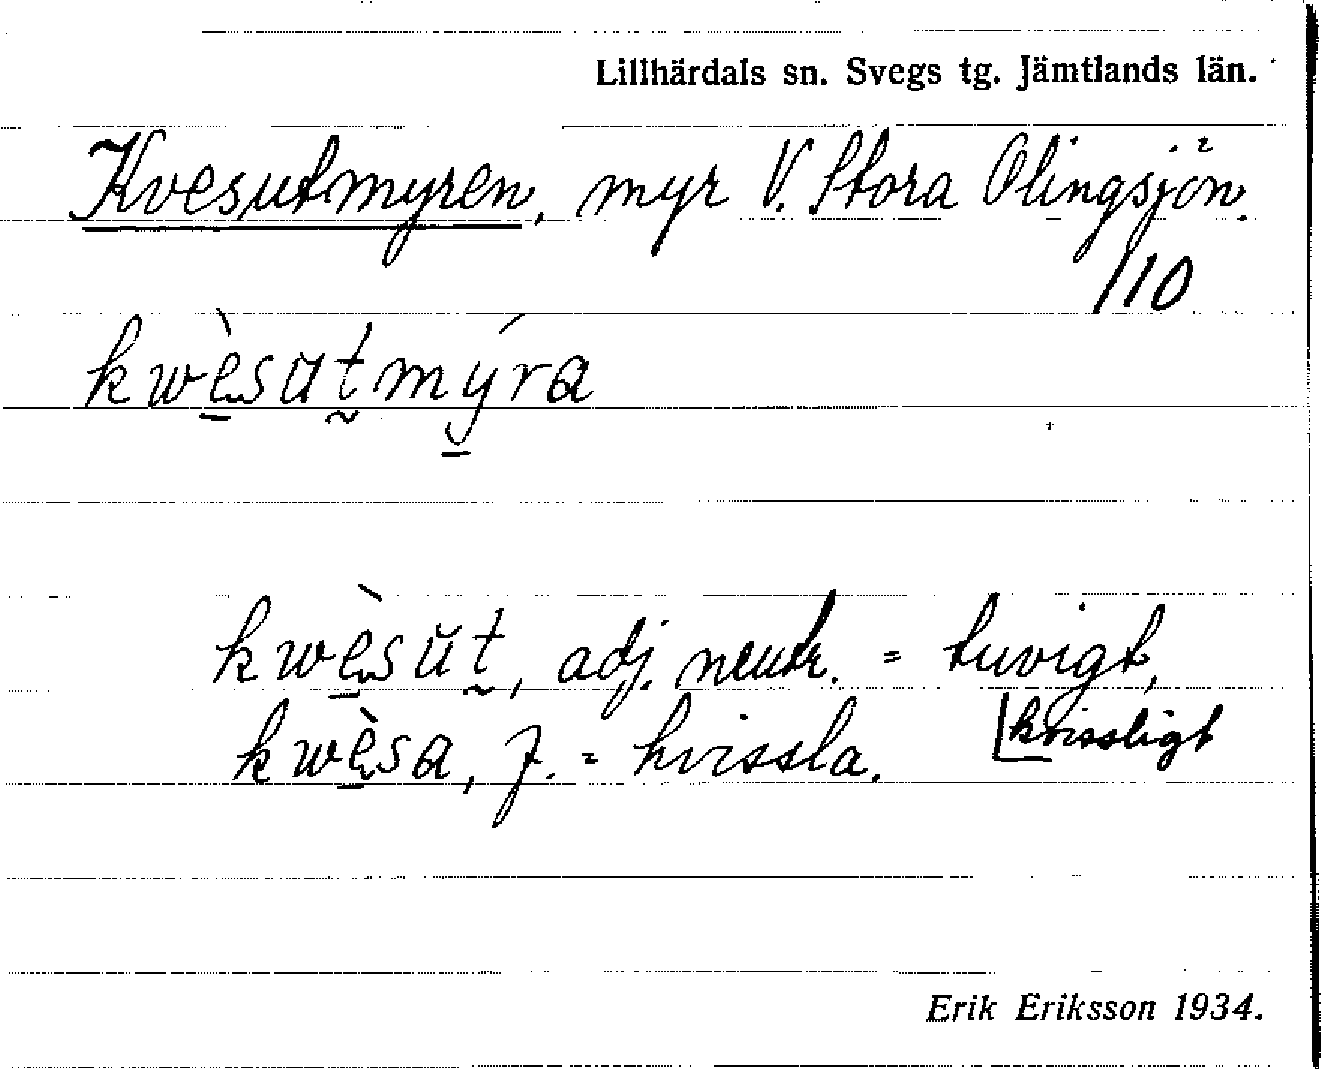 Lillhärdals sn. Svegs tg. Jämtlands län.
Kvesutmyren, myr V. Stora Olingsjön.
/10
kwèsutmýra
kwèsŭt, adj. neutr. = tuvigt,
kvissligt
kwèsa, f. = kvissla.
Erik Eriksson 1934.